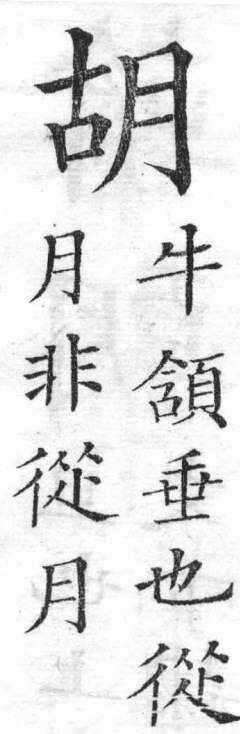 胡
牛頷垂也從
月非從月